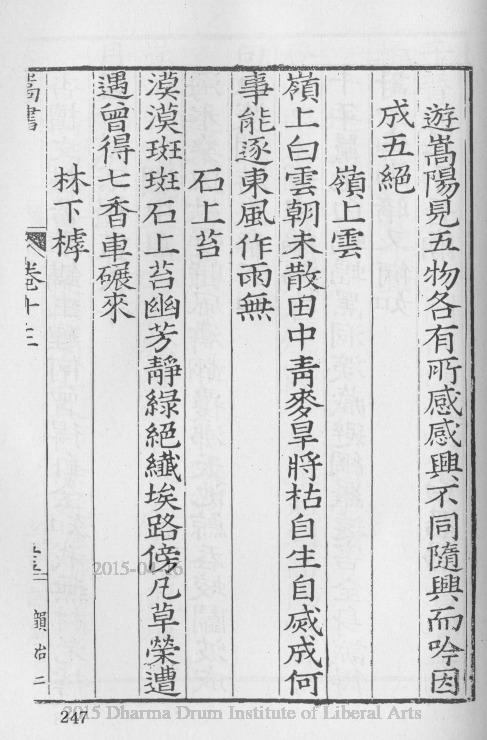 遊嵩陽見五物各有所感感興不同隨興而吟因
成五絕
嶺上雲
嶺上白雲朝未散田中青麥旱將枯自生自滅成何
事能逐東風作雨無
石上苔
漠漠斑斑石上苔幽芳靜綠絕纖埃路傍凡草榮遭
遇曾得七香車碾來
林下樗
嵩書
卷十三
韻治二
247
2015-04-16
2015 Dharma Drum Institute of Liberal Arts